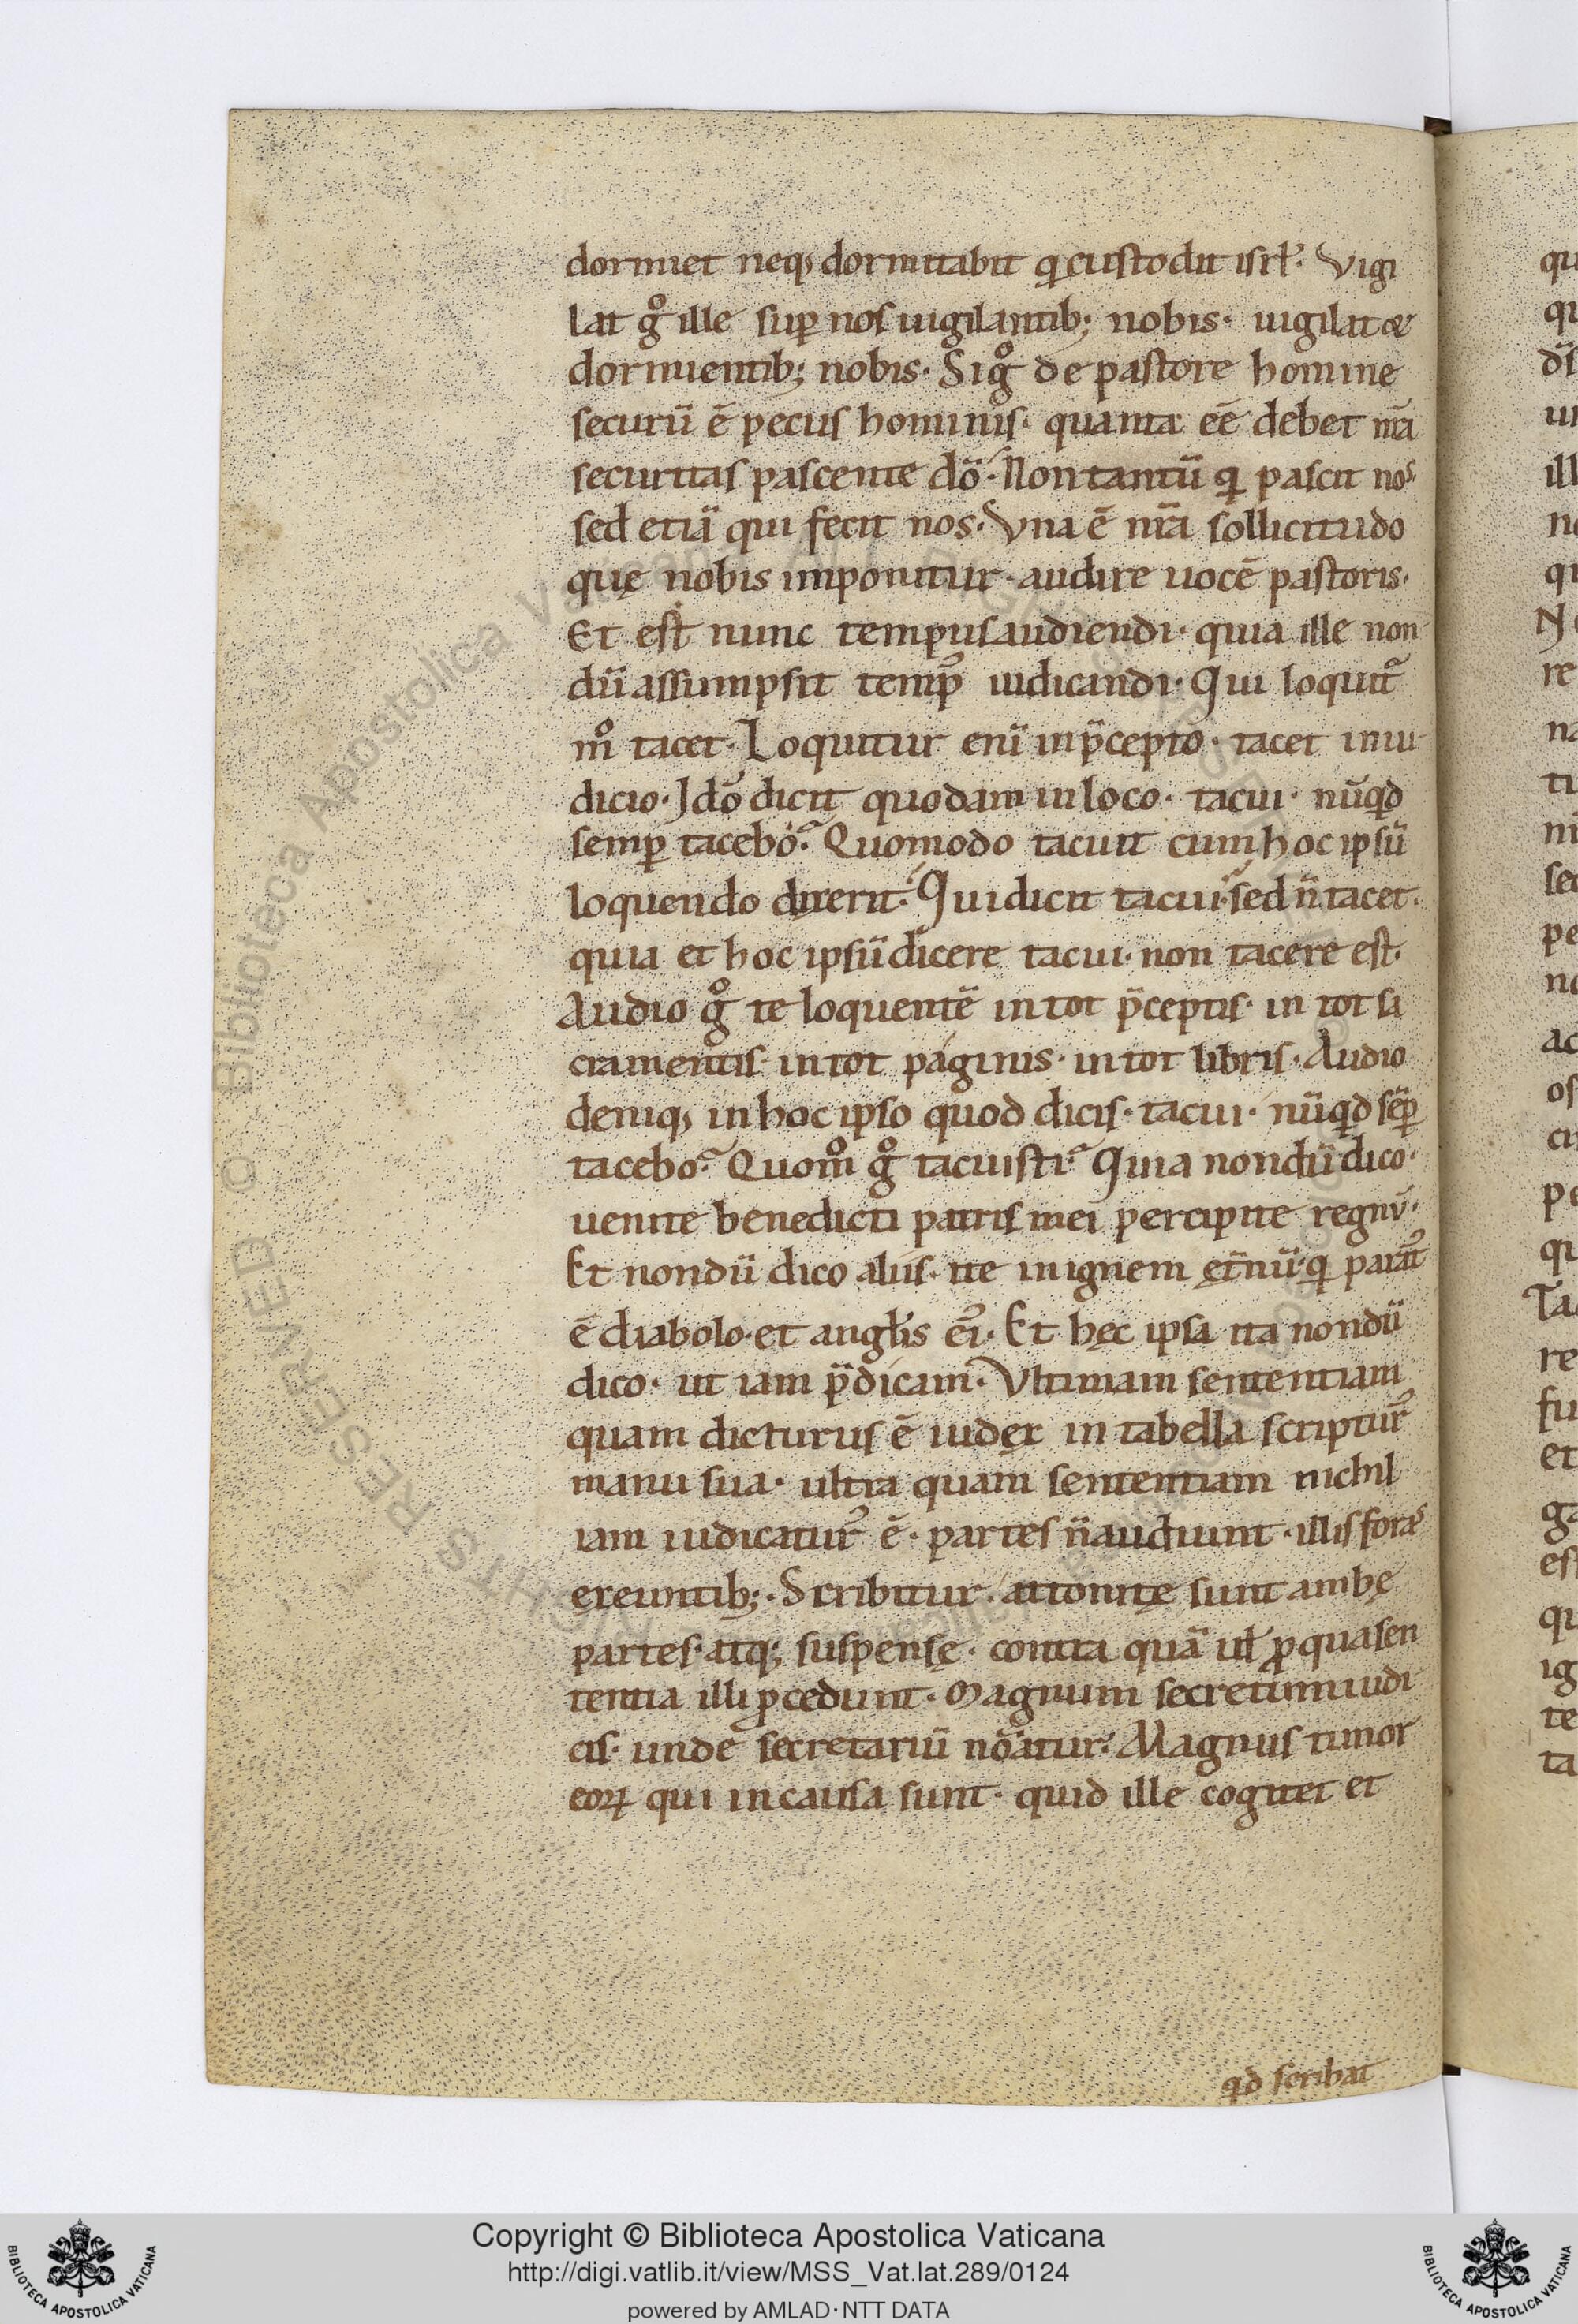 dormiet neq; dormitabit q̣ custodit isrl̓. Vigi
lat gͦ ille sup̱ nos uigilantib; nobis. uigilat &
dormientib; nobis. Si gͦ de pastore homine
securū ē pecus hominis. quanta eē debet nr̄a
securitas pascente dō. Non tantū q̣ pascit nos.
sed etiā qui fecit nos. Vna ē nr̄a sollicitudo
quę nobis imponitur. audire uocē pastoris.
Et est nunc tempus audiendi. quia ille non
dū assumpsit temp᾿ iudicandi. Qui loquit᷑
mͦ tacet. Loquitur enī in p̄cepto. tacet in iu
dicio. Ido᷄ dicit quodam in loco. tacui. nūq̣d
semp̱ tacebo? Quomodo tacuit cum hoc ipsū
loquendo dixerit? Qui dicit tacui. sed n̄ tacet.
quia et hoc ipsū dicere tacui. non tacere est.
Audio gͦ te loquentē in tot p̄ceptis. in tot sa
cramentis. in tot paginis. in tot libris. Audio
deniq; in hoc ipso quod dicis. tacui. nūq̣d sēp̱
tacebo? Quom̊ gͦ tacuisti? Quia nondū dico.
uenite benedicti patris mei percipite regnū.
Et nondū dico aliis. ite in ignem ęt̄nū. q̣ parat᾿
ē diabolo. et angl̓is ei᾿. Et hęc ipsa ita nondū
dico. ut iam p̄dicam. Vltimam sententiam
quam dicturus ē iudex in tabella scriptur᾿
manu sua. ultra quam sententiam nichil
iam iudicatur᾿ ē. partes n̄ audiunt. illis foras
exeuntib;. Scribitur. attonitę sunt ambę
partes. atq; suspensę. contra quā ul̓ ꝓ qua sen
tentia illi ꝓcedunt. Magnum secretum iudi
cis. unde secretariū nōatur. Magnus timor
eoꝝ qui in causa sunt. quid ille cogitet et
q̣d scribat
Copyright © Biblioteca Apostolica Vaticana
http://digi.vatlib.it/view/MSS_Vat.lat.289/0124
powered by AMLAD·NTT DATA